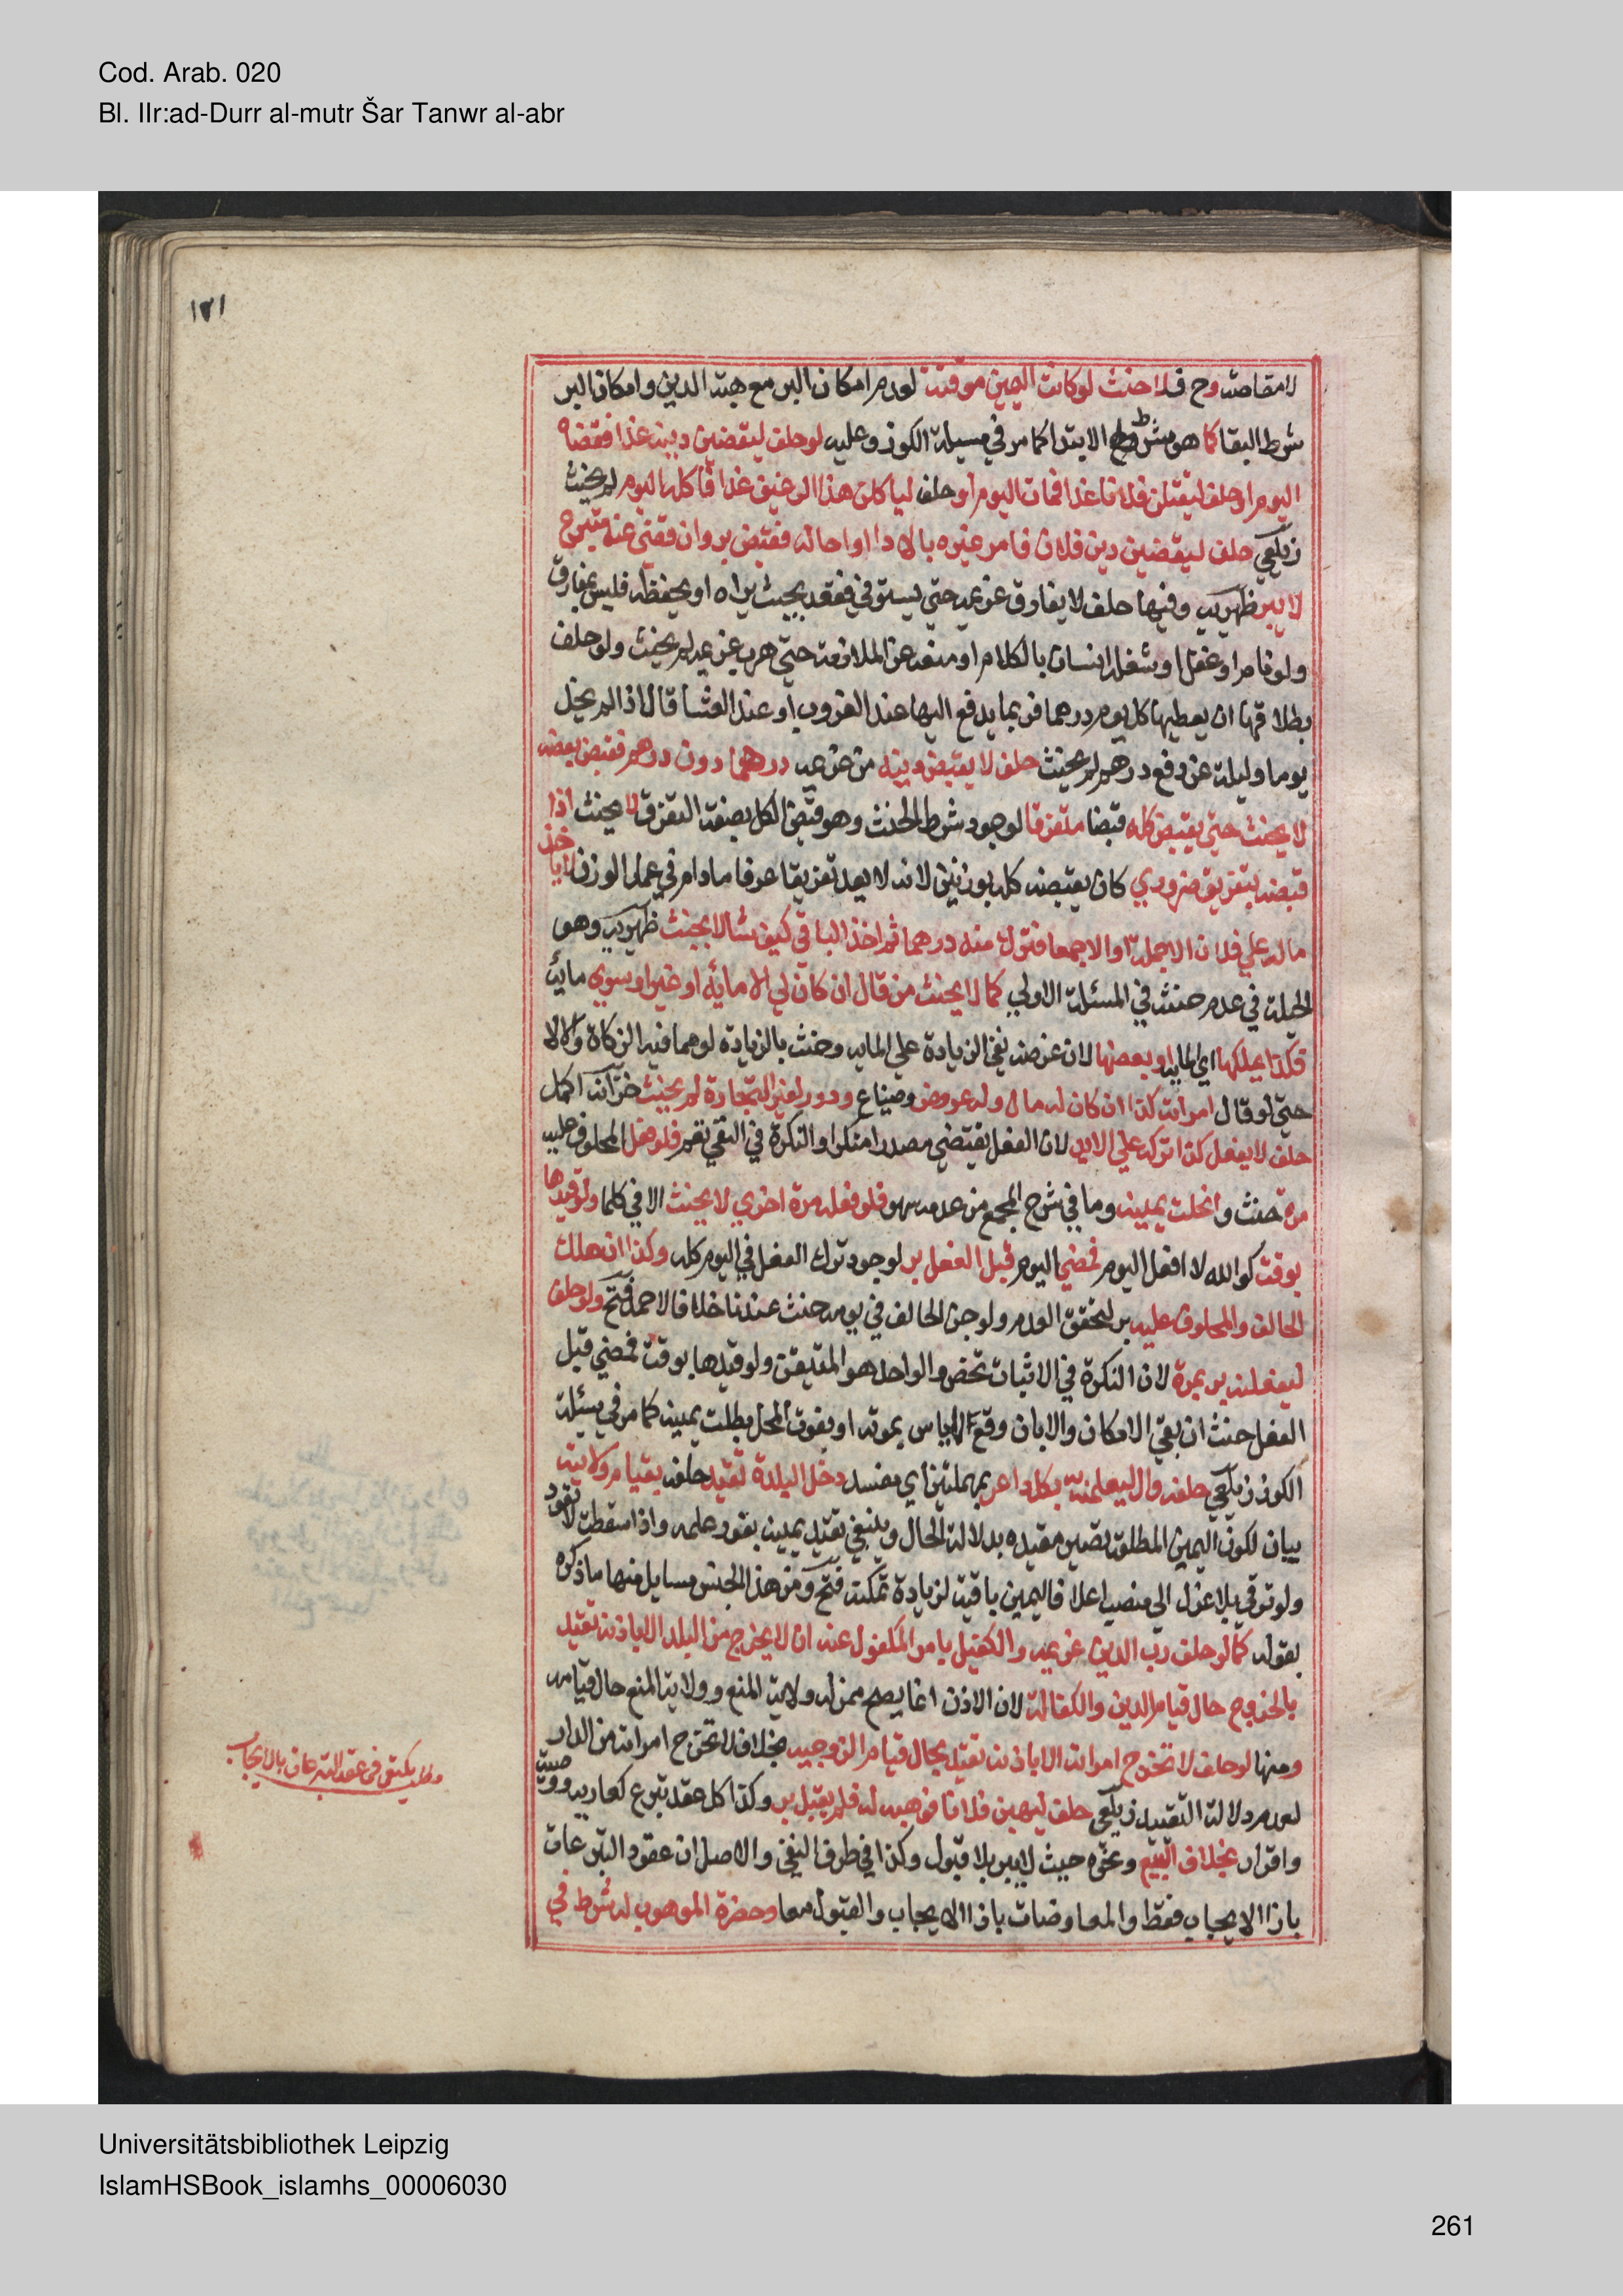 Cod. Arab. 020
Bl. IIr:ad-Durr al-mutr Šar Tanwr al-abr
١٣١
لا مقاصة وح فلا حنث لوكانت اليمين موقتة لعدم امكان البر مع هبة الدين وامكان البر
شرط البقا كما هو شرط الابتدا كما مر في مسيلة الكوز وعليه لوحلف ليقضين دينه غدا فقضاه
اليوم او حلف ليقتلن فلانا غدا فمات اليوم او حلف لياكلن هذا الرغيف غدا فاكله اليوم لم يحنث
زيلعي حلف ليقضين دين فلان فامر غيره بالادا او احاله فقبض بر وان قضي عنه متبرع
لا يبر ظهيريه وفيها حلف لا يفارق غريمه حتي يستوفي فقعد بحيث يراه او يحفظه فليس بمفارق
ولو نام او غفل او شغله انسان بالكلام او منعه عن الملازمة حتي هرب غريمه لم يحنث ولو حلف
بطلاقها ان يعطيها كل يوم درهما فربما يدفع اليها عند الغروب او عند العشا قال اذا لم يخل
يوما وليلة عن دفع درهم لم يحنث حلف لا يقبض دينه من غريمه درهما دون درهم فقبض بعضه
لا يحنث حتي يقبض كله قبضا متفرقا لوجود شرط الحنث وهو قبض الكل بصفة التفرق لا يحنث اذا
قبضه بتفريق ضروري كان يقبضه كله بوزنين لانه لا يعد تفريقا عرفا مادام في عمل الوزن لا ياخذ
ماله علي فلان الا جملة او الا جمعا فترك منه درهما ثم اخذ الباقي كيف شا لا يحنث ظهيريه وهو
الحيلة في عدم حنثه في المسئلة الاولي كما لا يحنث من قال ان كان لي الا مائة او غير او سوي مائة
فكذا بملكها اي المايه او بعضها لان غرضه نفي الزيادة علي المايه وحنث بالزيادة لو مما فيه الزكاة والا لا
حتي لو قال امراته كذا ان كان له مال وله عروض وضياع ودور لغير التجارة لم يحنث خزانة اكمل
حلف لا يفعل كذا تركه علي الابد لان الفعل يقتضي مصدرا منكرا والنكرة في النفي تعم فلو فعل المحلوف عليه
مرة حنث وانحلت يمينه وما في شرح المجمع من عدمه سهو فلو فعله مرة اخري لا يحنث الا في كلما ولو قيدها
بوقت كوالله لا افعل اليوم فمضي اليوم قبل الفعل بر لوجود ترك الفعل في اليوم كله وكذا ان هلك
الحالف والمحلوف عليه بر لتحقق العدم ولو جن الحالف في يومه حنث عندنا خلافا لاحمد فتح ولو حلف
ليفعلنه بر بمرة لان النكرة في الاثبات تخص والواحد هو المتيقن ولو قيدها بوقت فمضي قبل
الفعل حنث ان بقي الامكان والا بان وقع الياس بموته او بفوت المحل بطلت يمينه كما مر في مسئلة
الكوز زيلعي حلفه وال ليعلمنه بكل داعر بمهملتين اي مفسد دخل البلدة تقيد حلفه بقيام ولايته
بيان لكون اليمين المطلقة تصير مقيده بدلالة الحال وينبغي تقييد يمينه بفور علمه واذا سقطت لا تعود
ولو ترقي بلا عزل الي منصب اعلا فاليمين باقية لزيادة تمكنه فتح ومن هذا الجنس مسايل منها ما ذكره
بقوله كما لو حلف رب الدين غريمه والكفيل بامر المكفول عنه ان لا يخرج من البلد الا باذنه تقيد
بالخروج حال قيام الدين والكفالة لان الاذن انما يصح ممن له ولاية المنع وولاية المنع حال قيامه
ومنها لو حلف لا تخرج امراته الا باذنه تقيد بحال قيام الزوجيه بخلاف لا تخرج امراته من الدار
لعدم دلالة التقييد زيلعي حلف ليهبن فلانا فوهبه له فلم يقبل بر وكذا كل عقد تبرع كعاريه ووصية
واقرار بخلاف البيع ونحوه حيث لا يبر بلا قبول وكذا في طرف النفي والاصل ان عقود التبرعات
بازا الايجاب فقط والمعاوضات بازا الايجاب والقبول معا وحضرة الموهوب له شرط في
مطلب يكتفي في عقد التبرعات بالايجاب
Universitätsbibliothek Leipzig
IslamHSBook_islamhs_00006030
261